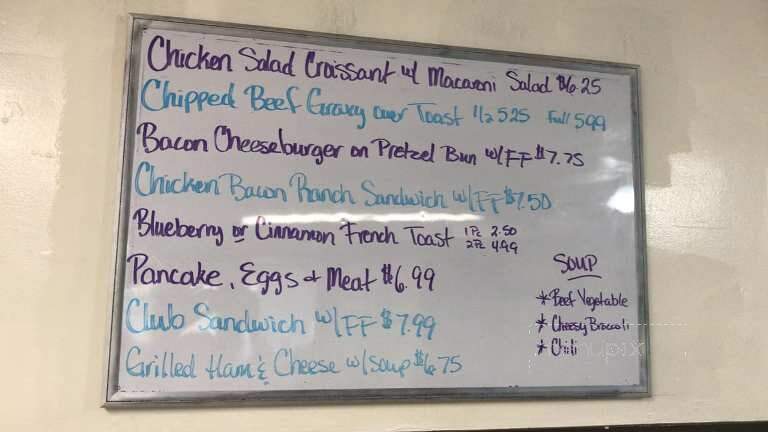 Chicken Salad Croissant w/ Macaroni Salad $6.25
Chipped Beef Gravy over Toast 1/2 5.25 Full 5.99
Bacon Cheeseburger on Pretzel Bun w/FF $7.75
Chicken Bacon Ranch Sandwich w/FF $7.50
Blueberry or Cinnamon French Toast 1Pc 2.50
2Pc 4.99
Pancake, Eggs + Meat $6.99
Club Sandwich w/FF $7.99
Grilled Ham & Cheese w/Soup $6.75
Soup
*Beef Vegetable
*Cheesy Broccoli
*Chili